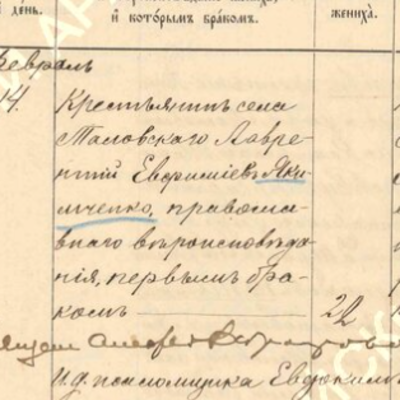 и день.
и которымъ бракомъ.
жениха.
Февраль
14.
Крестьянинъ села
Таловскаго Лавре-
нтій Евфиміевъ Яки-
мченко, православ-
наго вѣроисповѣда-
нія, первымъ бра-
комъ
22
И.д. псаломщика Евдоким